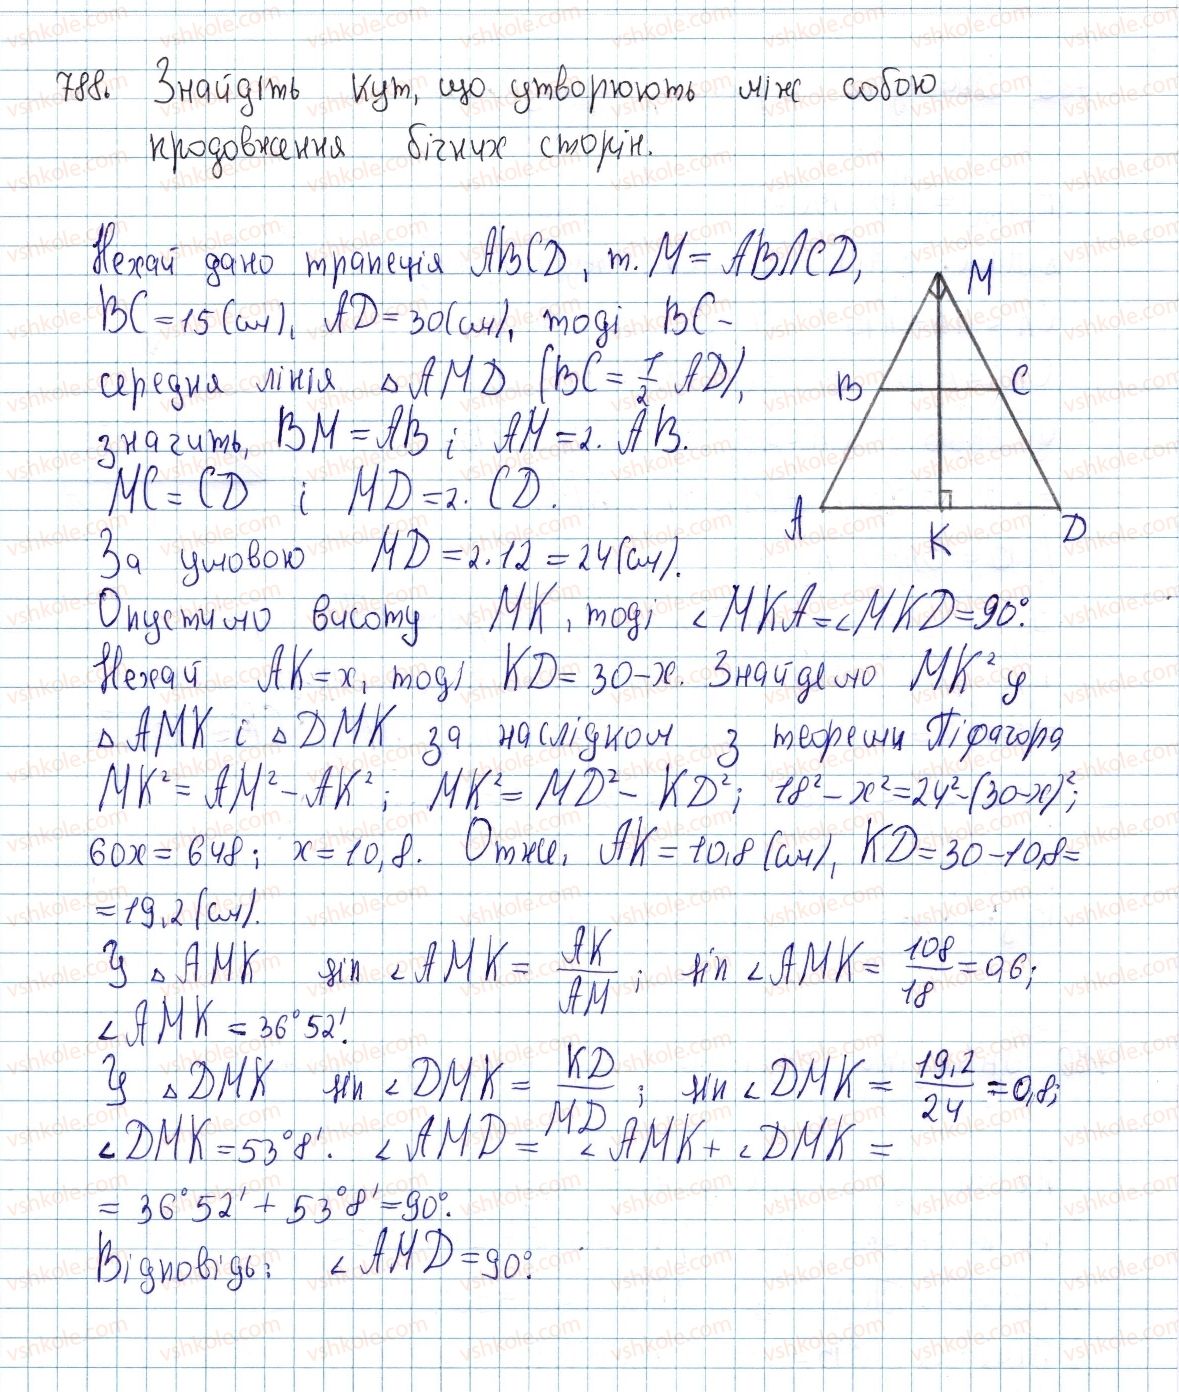 788. Знайдіть кут, що утворюють між собою
продовження бічних сторін.
Нехай дано трапеція ABCD, т. M = AB∩CD,
BC = 15 (см), AD = 30 (см), тоді BC -
середня лінія △AMD (BC = 1/2 AD),
значить, BM = AB і AM = 2. AB.
MC = CD і MD = 2. CD.
За умовою MD = 2.12 = 24 (см).
Опустимо висоту MK, тоді ∠MKA = ∠MKD = 90°.
Нехай AK = x, тоді KD = 30 - x. Знайдемо MK² у
△AMK і △DMK за наслідком з теореми Піфагора
MK² = AM² - AK²; MK² = MD² - KD²; 18² - x² = 24² - (30-x)²;
60x = 648; x = 10,8. Отже, AK = 10,8 (см), KD = 30 - 10,8 =
= 19,2 (см).
У △AMK sin ∠AMK = AK/AM; sin ∠AMK = 108/18 = 0,6;
∠AMK = 36°52'.
У △DMK sin ∠DMK = KD/MD; sin ∠DMK = 19,2/24 = 0,8;
∠DMK = 53°8'. ∠AMD = ∠AMK + ∠DMK =
= 36°52' + 53°8' = 90°.
Відповідь: ∠AMD = 90°.
M
B
C
A
K
D
vshkole.com